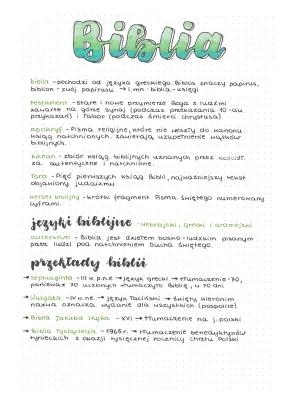 Biblia
biblia - pochodzi od języka greckiego. Biblos znaczy papirus,
biblion - zwój papirusu → l.mn. biblia - księgi
testament - stare i nowe przymierze Boga z ludźmi
zawarte na górze Synaj (podczas przekazania 10-ciu
przykazań) i Tabor (podczas śmierci chrystusa)
apokryf - Pisma religijne, które nie weszły do kanonu
ksiąg natchnionych. zawierają uzupełnienie wątków
biblijnych.
kanon - zbiór ksiąg biblijnych uznanych przez kościół
za autentyczne i natchnione.
Tora - Pięć pierwszych ksiąg Biblii, najważniejszy tekst
objawiony judaizmu
werset biblijny - krótki fragment Pisma Świętego numerowany
cyframi.
języki biblijne - Hebrajski, grecki i aramejski
autorstwo - Biblia jest dziełem bosko-ludzkim pisanym
przez ludzi pod natchnieniem Ducha Świętego.
przekłady biblii
→ Septuaginta - III w p.n.e → język grecki → tłumaczenie 70,
ponieważ 70 uczonych tłumaczyło Biblię, w 70 dni
→ Wulgata - IV w.n.e. → język łaciński → święty Hieronim
nazwa oznacza wydanie dla wszystkich (pospolite)
→ Biblia Jakuba Wujka - XVI → tłumaczenie na j. polski
→ Biblia Tysiąclecia - 1965r. → tłumaczenie benedyktynów
tynieckich z okazji tysięcznej rocznicy chrztu Polski